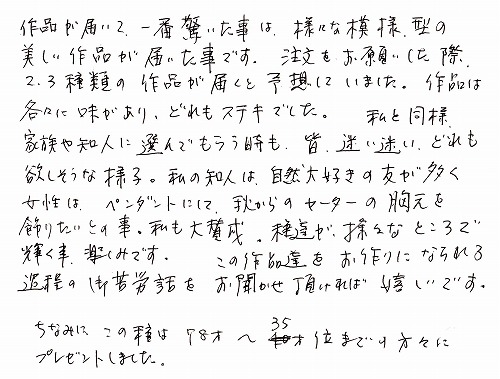 作品が届いて、一番驚いた事は、様々な模様、型の
美しい作品が届いた事です。 注文をお願いした際、
2.3種類の作品が届くと予想していました。作品は
各々に味があり、どれもステキでした。 私と同様、
家族や知人に選んでもらう時も、皆、迷い迷い、どれも
欲しそうな様子。私の知人は、自然大好きの友が多く
女性は、ペンダントにして、秋からのセーターの胸元を
飾りたいとの事。私も大賛成。種達が、様々なところで
輝く事、楽しみです。 この作品達をお作りになられる
過程の御苦労話をお聞かせ頂ければ嬉しいです。
ちなみに この種は 78才 〜 35才位までの方々に
プレゼントしました。